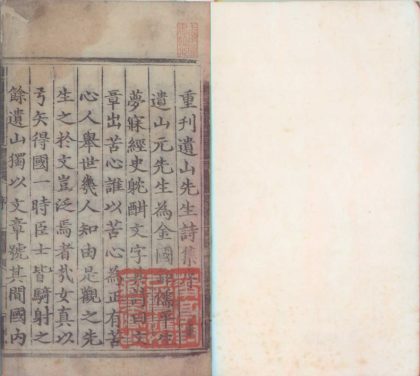 重刊遺山先生詩集序
遺山元先生為金國
夢寐經史躭酣文字
章出苦心誰以苦心為正有苦
心人舉世幾人知由是觀之先
生之於文豈泛焉者㢤女真以
弓矢得國一時臣士皆騎射之
餘遺山獨以文章號其間國内